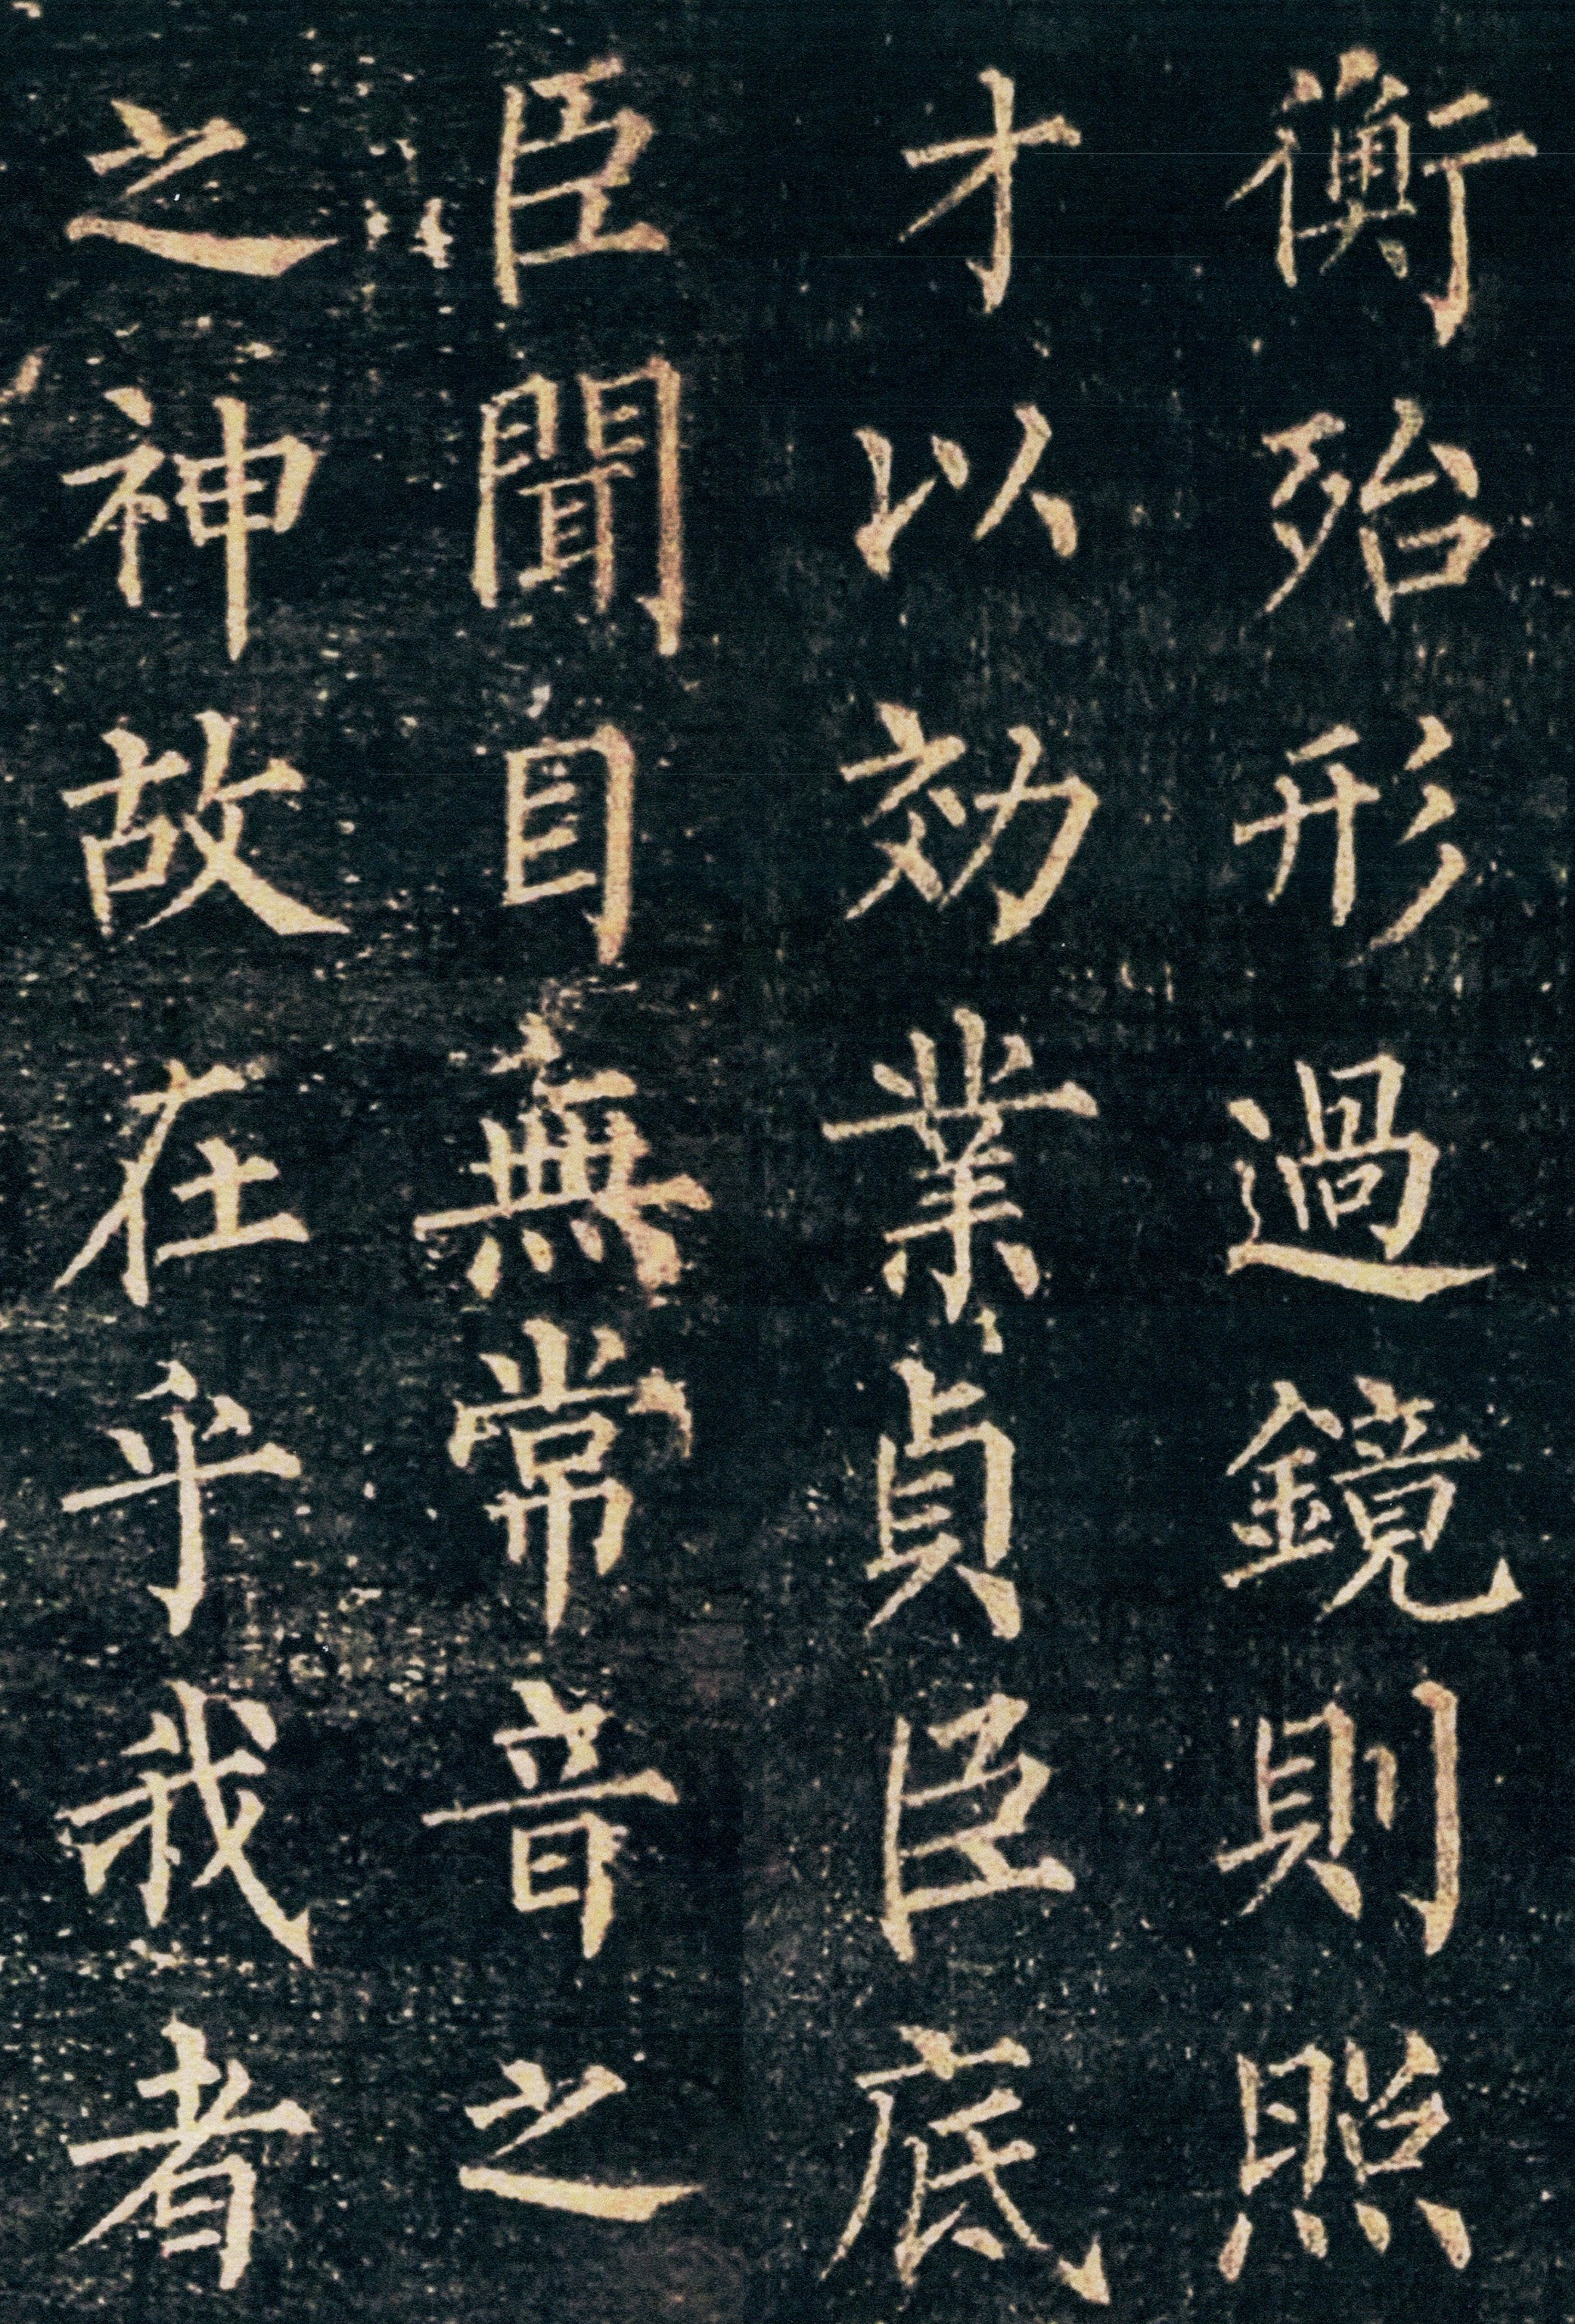 衡殆形過鏡則照
才以効業貞臣底
臣聞目無常音之
之神故在乎我者